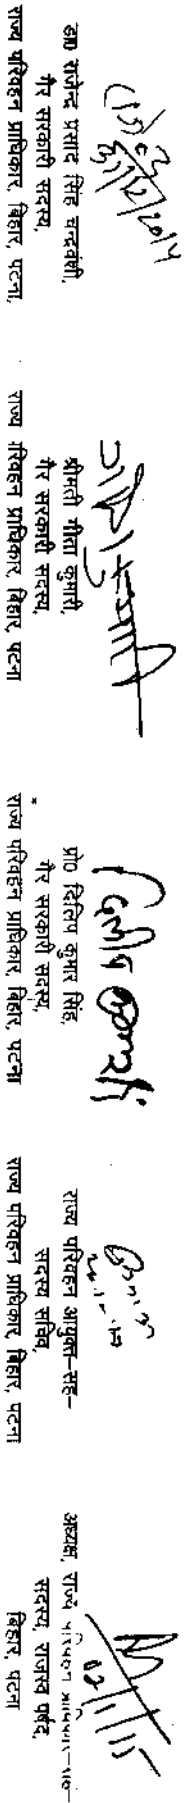 31/12/2014
डा0 राजेन्द्र प्रसाद सिंह चन्द्रवंशी,
गैर सरकारी सदस्य,
राज्य परिवहन प्राधिकार, बिहार, पटना,
श्रीमती गीता कुमारी,
गैर सरकारी सदस्य,
राज्य रिवहन प्राधिकार, बिहार, पटना
प्रो0 दिलिप कुमार सिंह,
गैर सरकारी सदस्य,
राज्य परिवहन प्राधिकार, बिहार, पटना
राज्य परिवहन आयुक्त-सह-
सदस्य सचिव,
राज्य परिवहन प्राधिकार, बिहार, पटना
02/1/15
अध्यक्ष, राज्य परिवहन प्राधिकार-सह-
सदस्य, राजस्व पर्षद,
बिहार, पटना